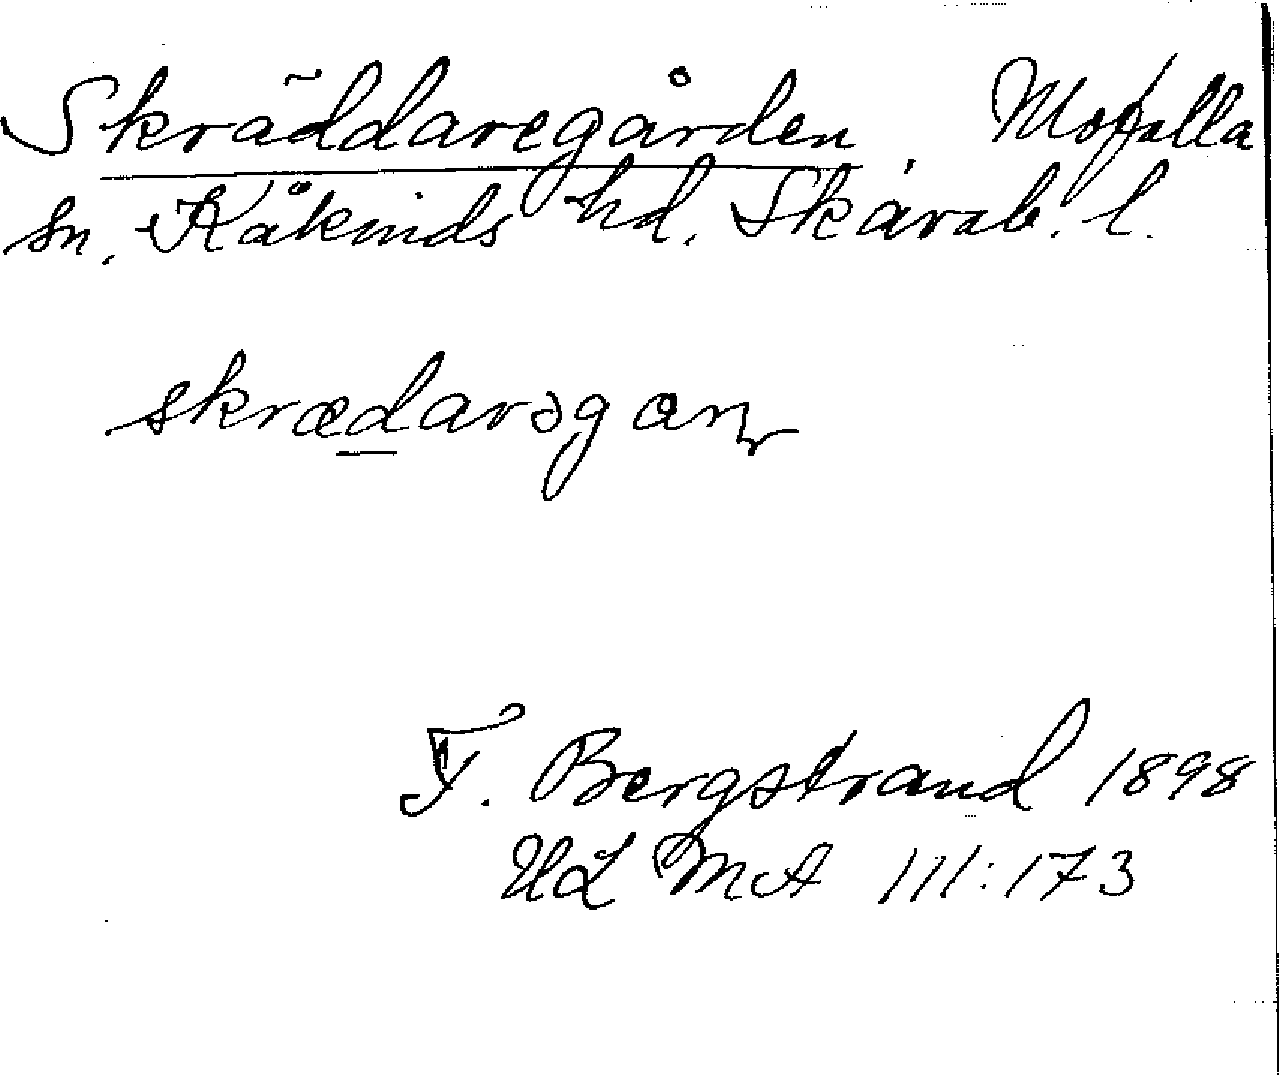 Skräddaregården, Mofalla
sn. Kåkinds hd. Skarab. l.
skrædarəgαr
F. Bergstrand 1898
ULMA 111:173